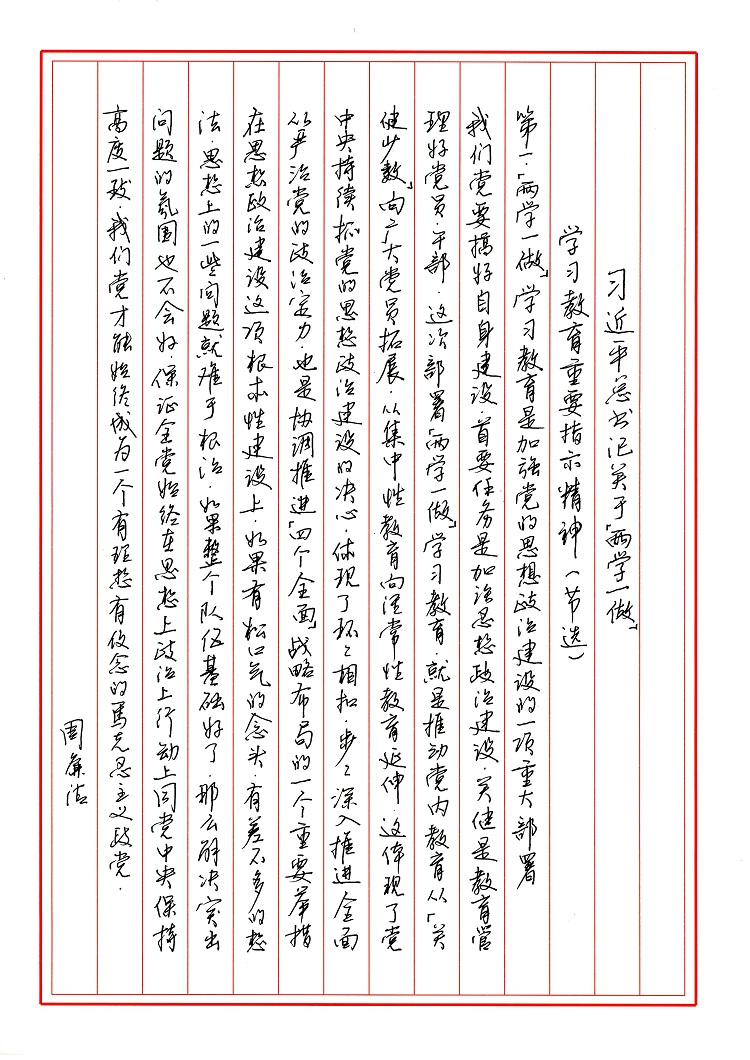 习近平总书记关于「两学一做」
学习教育重要指示精神（节选）
第一.「两学一做」学习教育是加强党的思想政治建设的一项重大部署
我们党要搞好自身建设.首要任务是加强思想政治建设.关健是教育管
理好党员.干部.这次部署「两学一做」学习教育.就是推动党内教育从「关
健少数」向广大党员拓展.从集中性教育向经常性教育延伸.这体现了党
中央持续抓党的思想政治建设的决心.体现了环々相扣.步々深入推进全面
从严治党的政治定力.也是协调推进「四个全面」战略布局的一个重要举措
在思想政治建设这项根本性建设上.如果有松口气的念头.有差不多的想
法.思想上的一些问题就难于根治.如果整个队伍基础好了.那么解决突出
问题的氛围也不会好.保证全党始终在思想上政治上行动上同党中央保持
高度一致.我们党才能始终成为一个有理想有信念的馬克思主义政党.